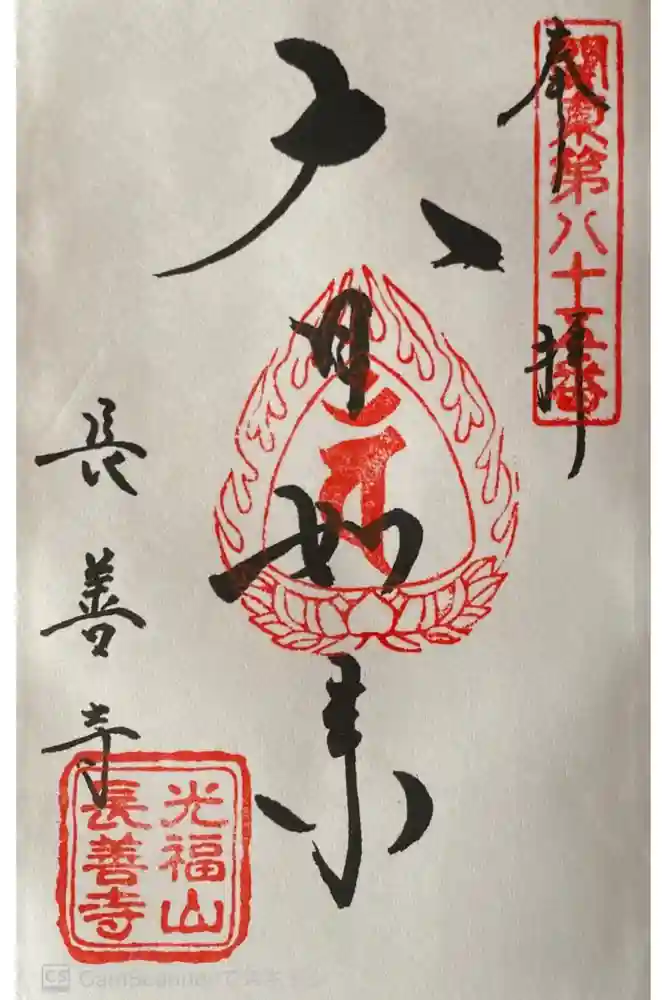 奉拝
關東第八十五番
大日如来
長善寺
光福山
長善寺
CS CamScannerでスキャン